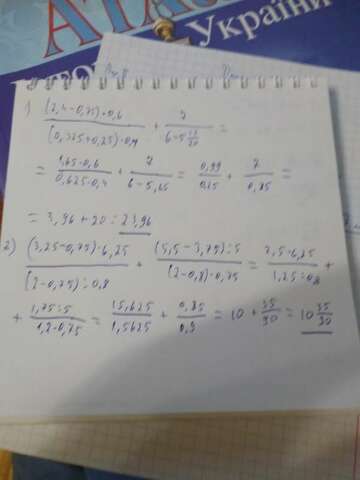 АТЛАС
України
1) (2,4-0,75)·0,6 / (0,375+0,25)·0,4 + 7 / 6-5 13/20 =
= 1,65·0,6 / 0,625·0,4 + 7 / 6-5,65 = 0,99 / 0,25 + 7 / 0,35 =
= 3,96 + 20 = 23,96
2) (3,25-0,75)·6,25 / (2-0,75):0,8 + (5,5-3,75):5 / (2-0,8)·0,75 = 2,5·6,25 / 1,25:0,8 +
+ 1,75:5 / 1,2·0,75 = 15,625 / 1,5625 + 0,35 / 0,9 = 10 + 35/90 = 10 35/90